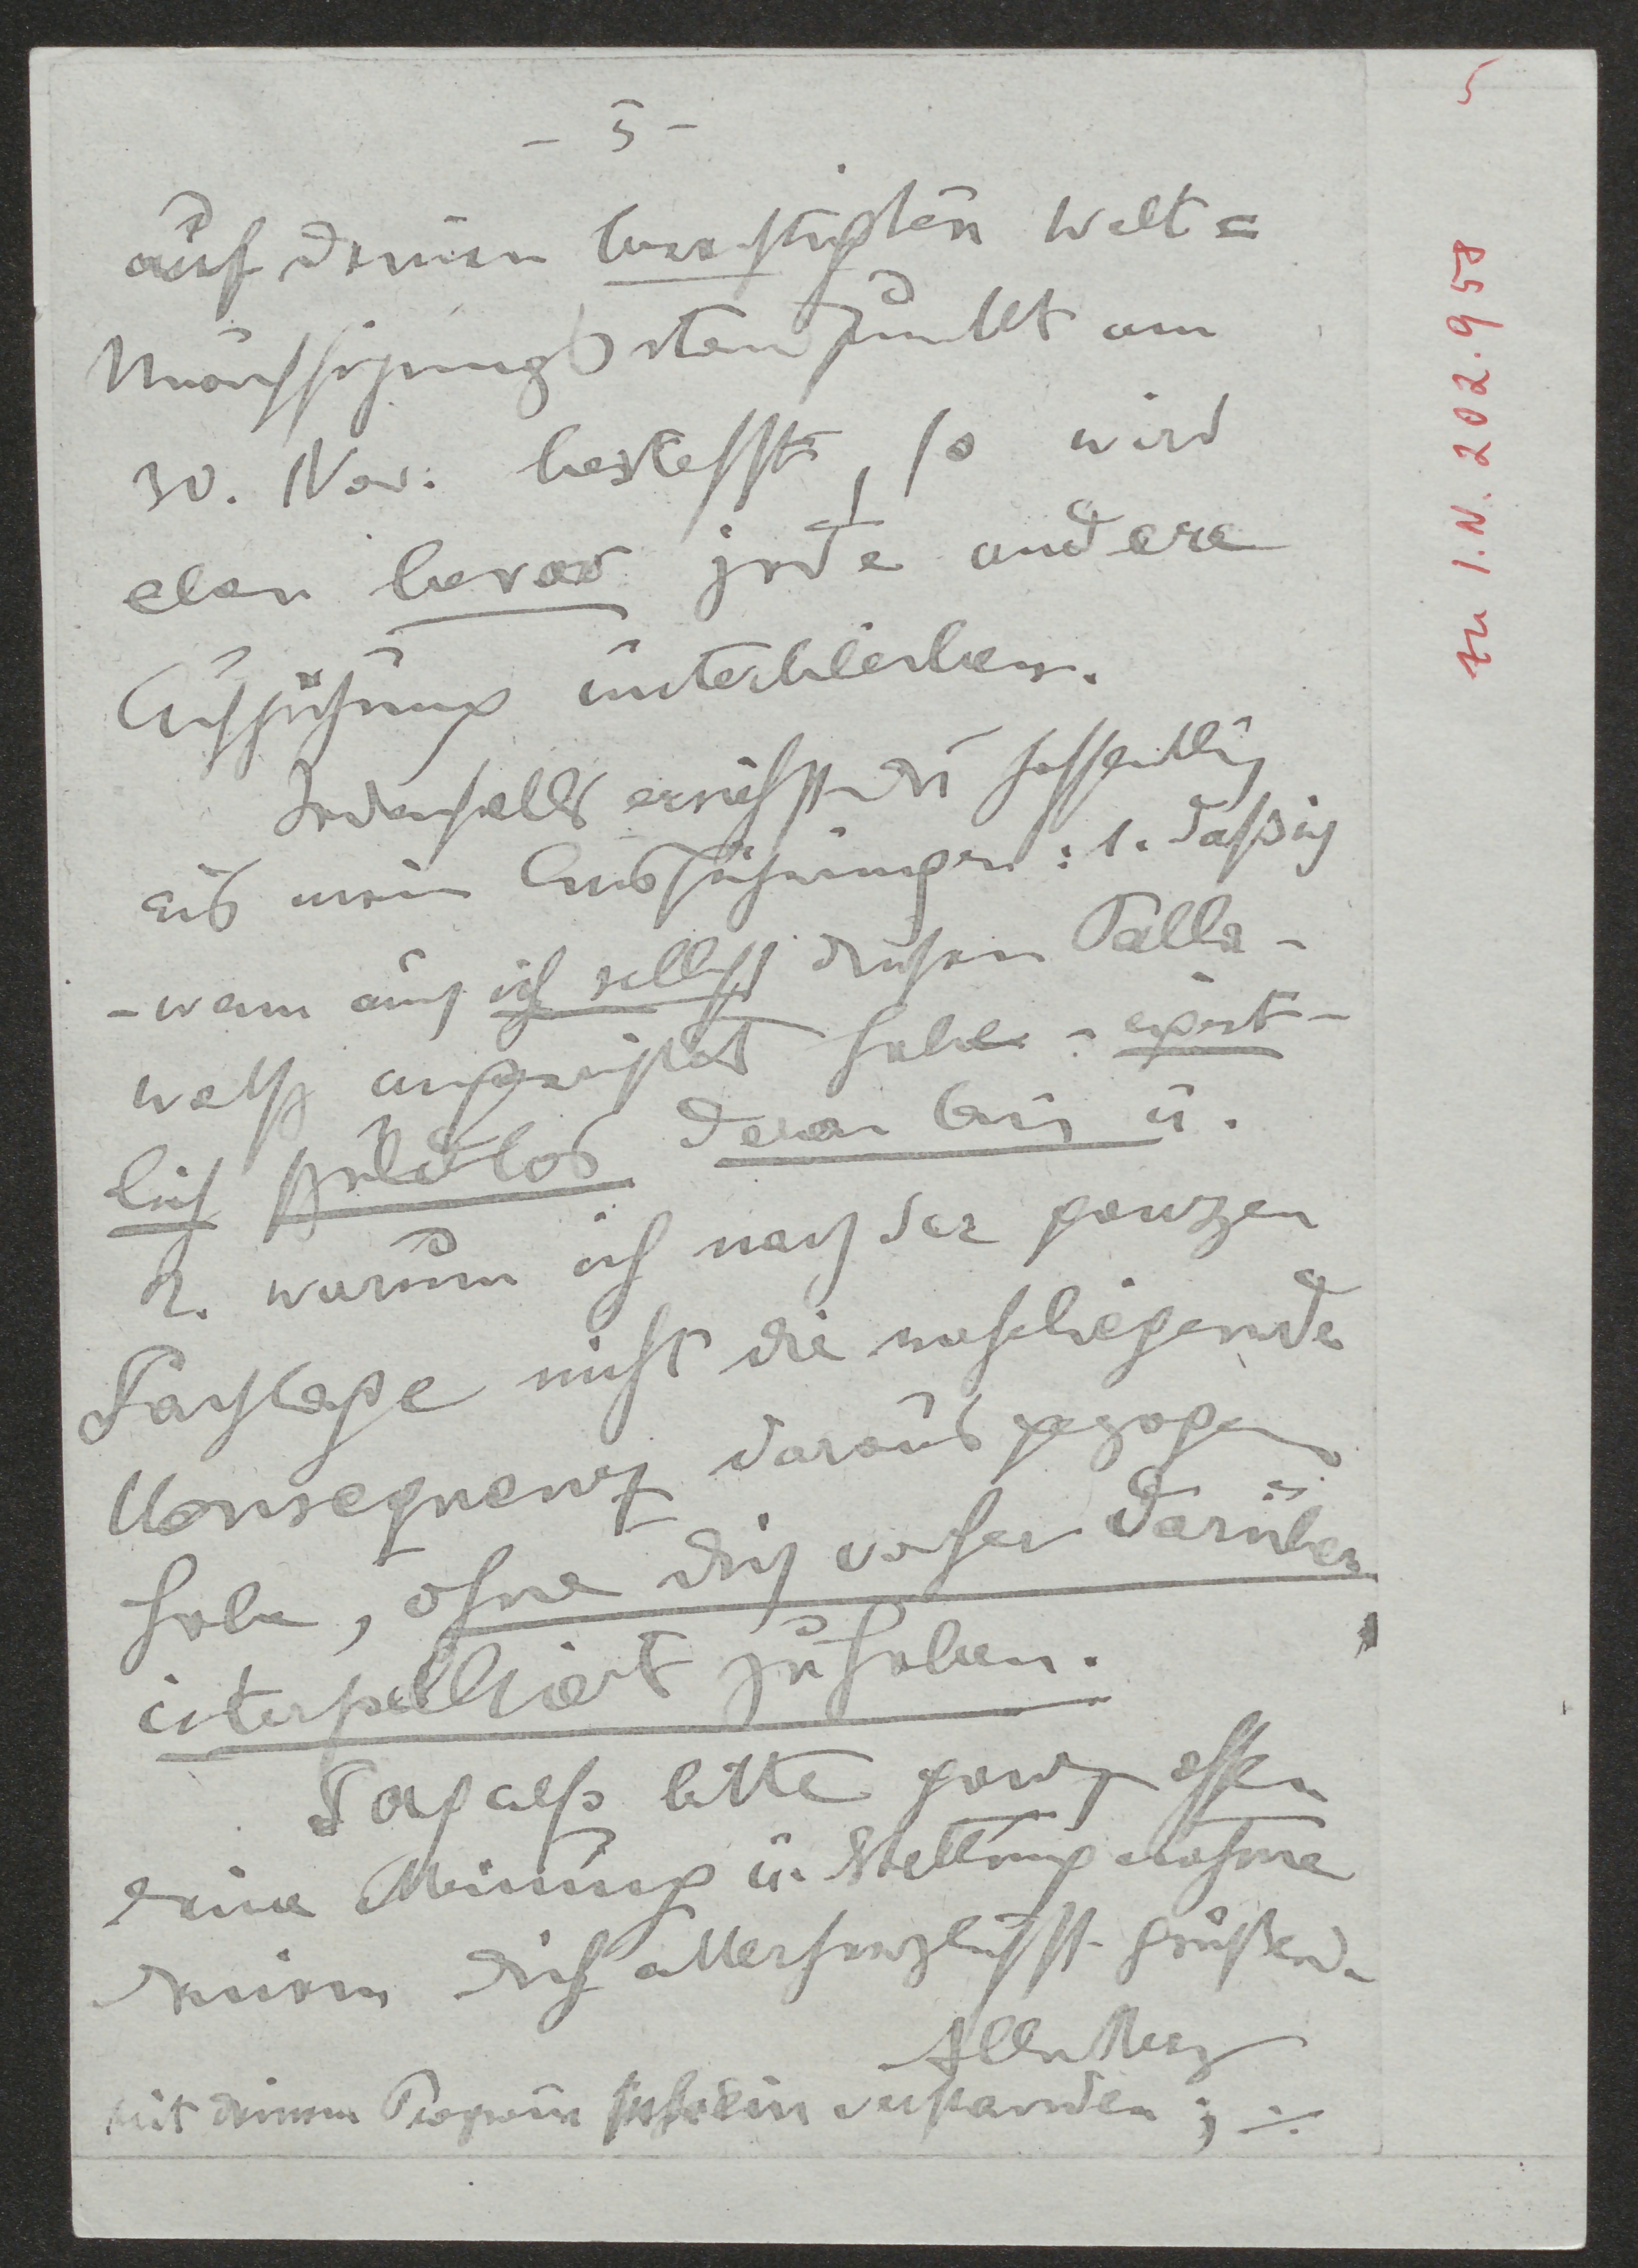 - 5 -
auf deinen berechtigten Welt=
Uraufführungsstandpunkt am
30. Nov: bestehst, so wird
eben bevor jede andere
Aufführung unterbleiben.
Jedenfalls ersiehst du hoffentlich
aus mein Ausführungen: 1. daß ich
- wenn auch ich selbst diesen Falle -
welch angerichtet habe - eigent-
lich schuldlos daran bin u.
2. warum ich nach der ganzen
Sachlage nicht die naheliegende
Konsequenz daraus gezogen
habe, ohne dich vorher darüber
interpelliert zu haben.
Sag also bitte ganz offen
deine Meinung u. Stellungnahme
deinem dich allerherzlichst grüßend.
mit deinem Program sehr einverstanden; ./.
zu I.N. 202.958
5